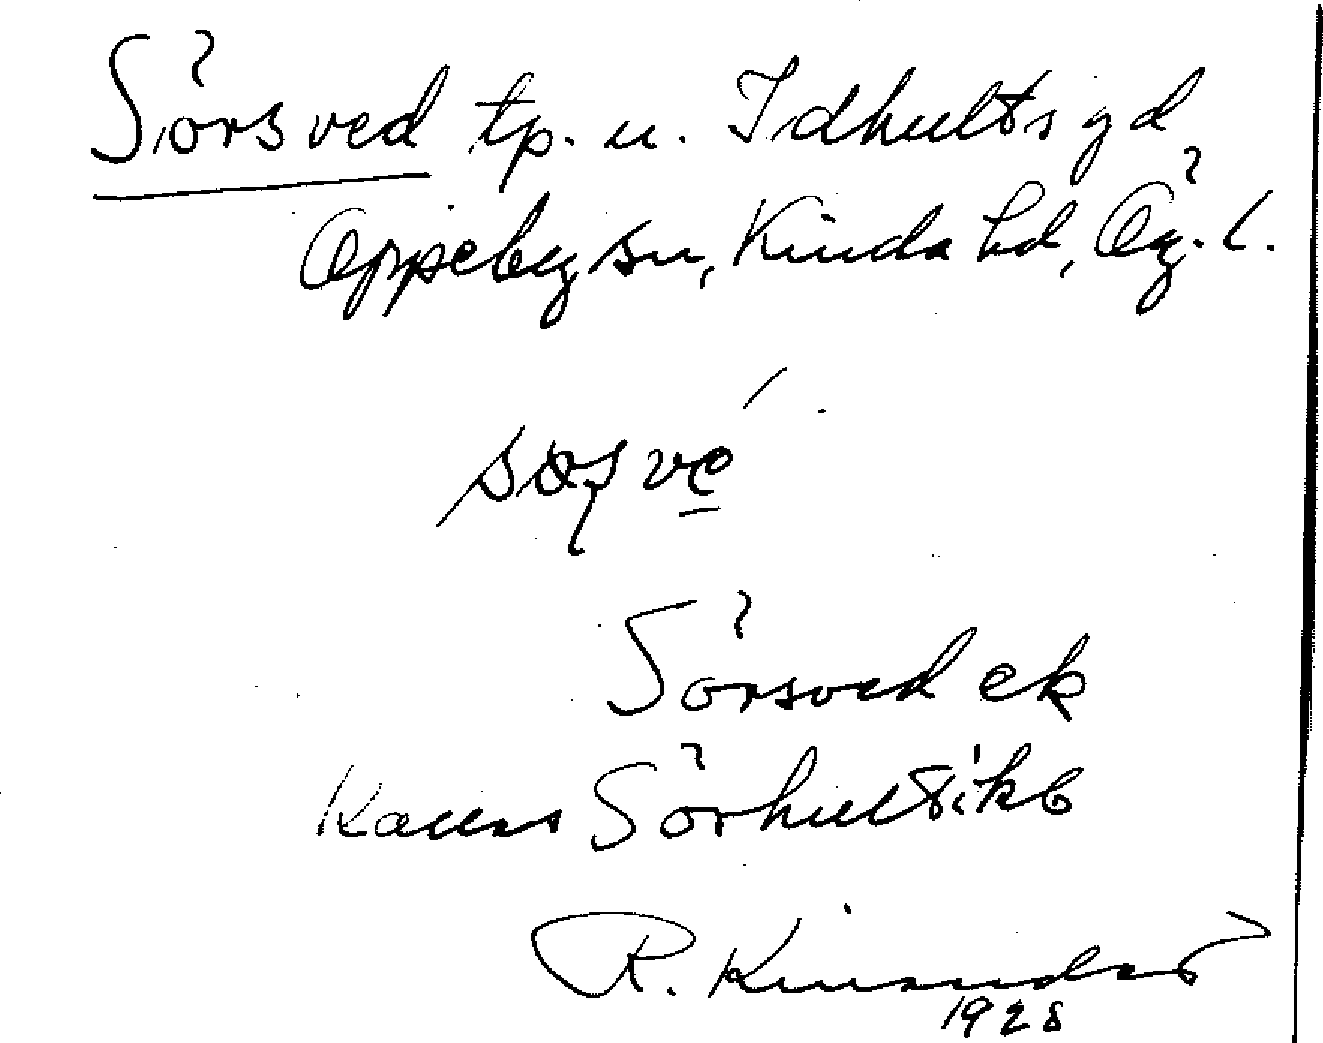 Sörsved tp. u. Idhults gd
Oppeby sn, Kinda hd, Ög. l.
Sörsved ek
Sörhult i kb
R. Kinander
1928